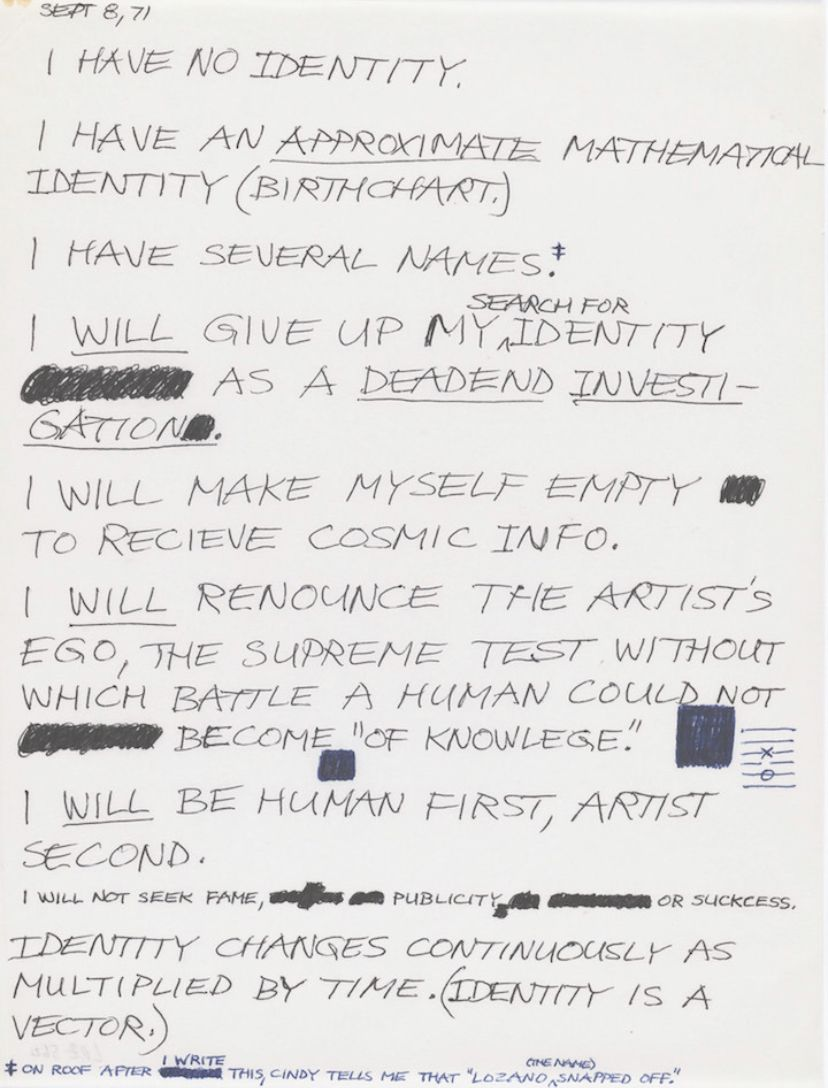 SEPT 8, 71
I HAVE NO IDENTITY.
I HAVE AN APPROXIMATE MATHEMATICAL
IDENTITY (BIRTHCHART.)
I HAVE SEVERAL NAMES.‡
SEARCH FOR
I WILL GIVE UP MY ^ IDENTITY
AS A DEADEND INVESTI-
GATION.
I WILL MAKE MYSELF EMPTY
TO RECIEVE COSMIC INFO.
I WILL RENOUNCE THE ARTIST'S
EGO, THE SUPREME TEST WITHOUT
WHICH BATTLE A HUMAN COULD NOT
BECOME "OF KNOWLEGE."
X
O
I WILL BE HUMAN FIRST, ARTIST
SECOND.
I WILL NOT SEEK FAME, PUBLICITY, OR SUCKCESS.
IDENTITY CHANGES CONTINUOUSLY AS
MULTIPLIED BY TIME. (IDENTITY IS A
VECTOR.)
I WRITE (THE NAME)
‡ ON ROOF AFTER THIS, CINDY TELLS ME THAT "LOZANO ^ SNAPPED OFF."